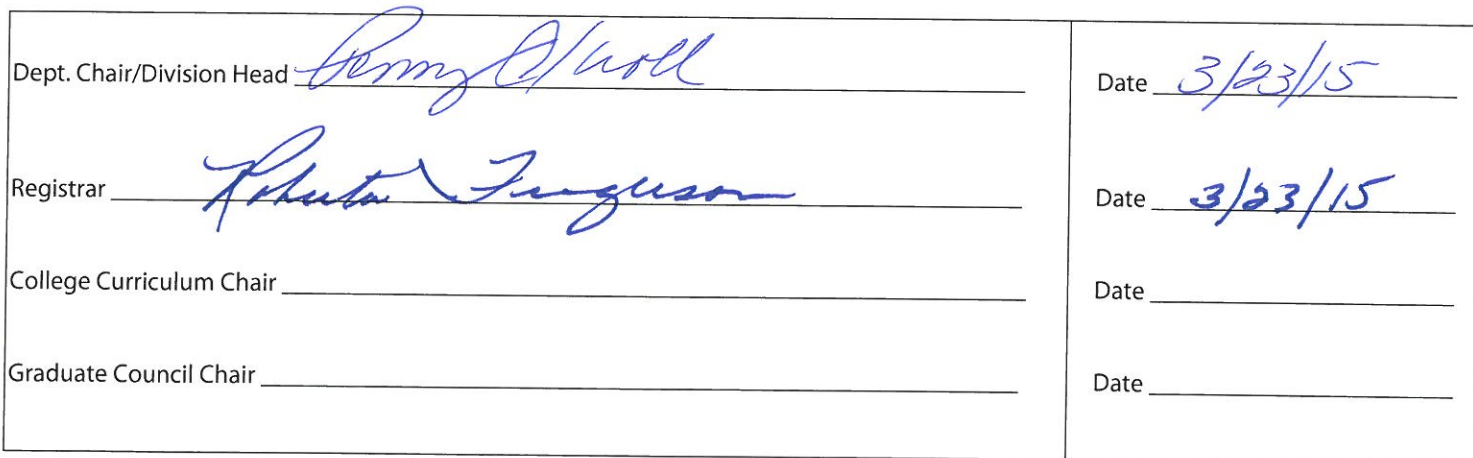 Dept. Chair/Division Head Penny Date 3/23/15
Registrar Roberta Ferguson Date 3/23/15
College Curriculum Chair Date
Graduate Council Chair Date